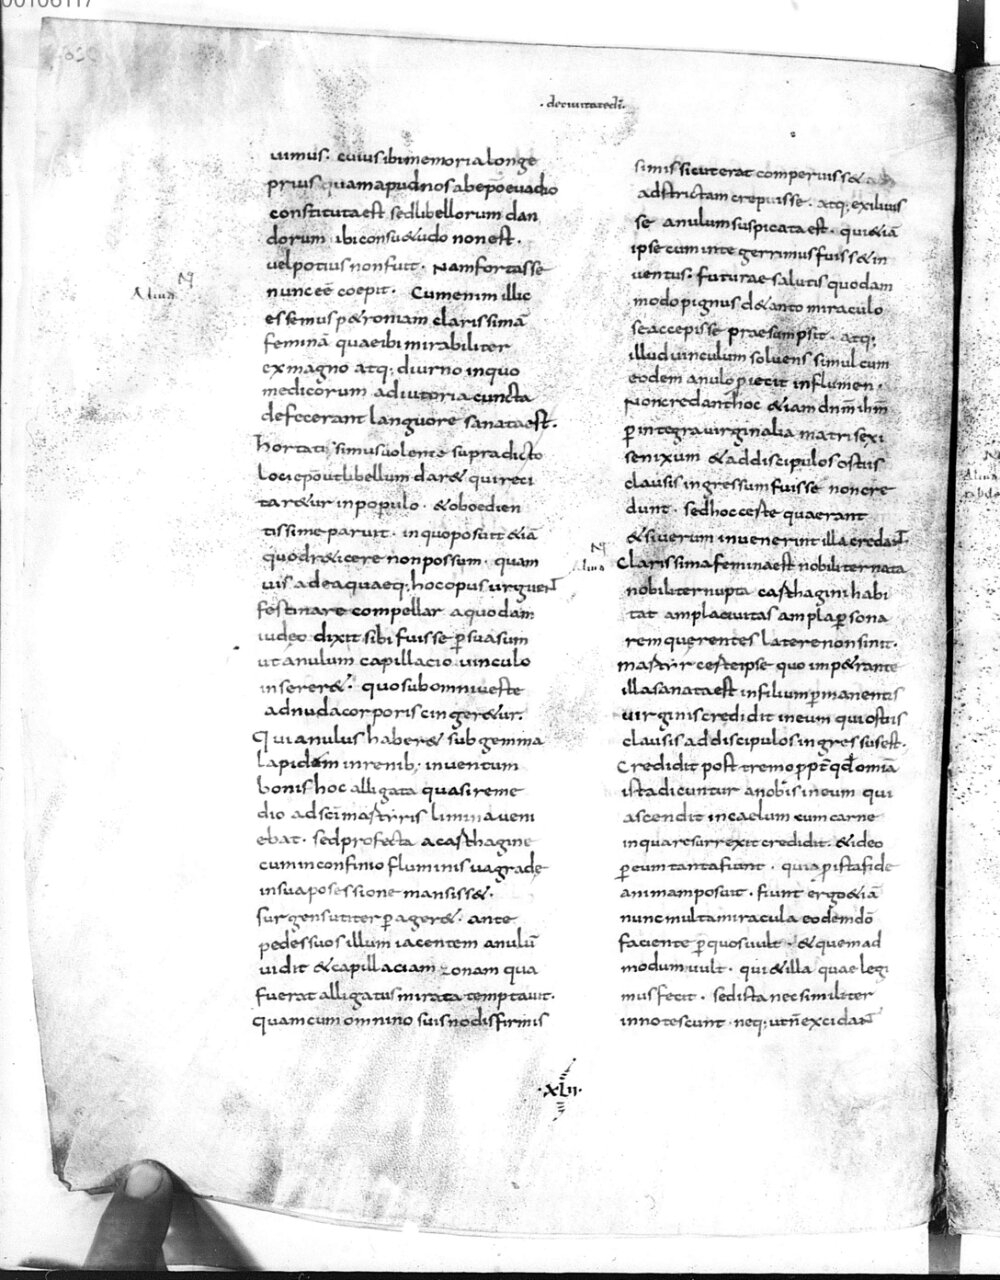 00106117
·decivitatedī·
uimus· cuius ibi memoria longe
prius quam apud nos ab epō euodio
constituta est sed libellorum dan
dorum ibi consuetudo non est·
uel potius non fuit· Nam fortasse
nunc eē coepit· Cum enim illic
essemus petroniam clarissimā
feminā quae ibi mirabiliter
ex magno atq; diurno in quo
medicorum adiutoria cuncta
defecerant languore sanata est·
hortati simus uolente supradicto
loci epō ut libellum daret qui reci
taretur in populo· et oboedien
tissime paruit· in quo posuit etiā
quod reticere non possum· quam
uis ad ea quaeq; hoc opus urguent
festinare compellar a quodam
iudeo dixit sibi fuisse p suasum
ut anulum capillacio uinculo
insereret· quo sub omni ueste
ad nuda corporis cingeretur·
Qui anulus haberet sub gemma
lapidem in renib; inuentum
bouis hoc alligata quasi reme
dio ad scī martyris limina ueni
ebat· sed profecta a carthagine
cum in confinio fluminis uagrade
in sua possessione mansisset·
surgens ut iter pageret· ante
pedes suos illum iacentem anulū
uidit et capillaciam zonam qua
fuerat alligatus mirata temptauit·
quam cum omnino suis nodis firmis
simis sicut erat comperuisset
adstrictam crepuisse· atq; exiluis
se anulum suspicata est· qui etiā
ipse cum integerrimus fuisset in
uentus· futurae salutis quodam
modo pignus de tanto miraculo
se accepisse praesumpsit· atq;
illud uinculum soluens simul cum
eodem anulo piecit in flumen·
Non credant hoc etiam dnm̄ ihm̄
p integra uirginalia matris exi
se nixum et ad discipulos ostiis
clausis ingressum fuisse non cre
dunt· sed hoc certe quaerant
et si uerum inuenerint illa credant
Clarissima femina est nobiliter nata
nobiliter nupta carthagini habi
tat ampla ciuitas ampla p sona
rem querentes latere non sinit·
martyr certe ipse quo impetrante
illa sanata est in filium p manentis
uirginis credidit in eum qui ostiis
clausis ad discipulos ingressus est·
Credidit postremo pptē qd omiā
ista dicuntur a nobis in eum qui
ascendit in caelum cum carne
in qua resurrexit credidit· et ideo
p eum tanta fiunt· quia p ista fide
animam posuit· fiunt ergo etiā
nunc multa miracula eodem dō
faciente p quos uult· et quem ad
modum uult· qui et illa quae legi
mus fecit· sed ista nec similiter
innotescunt· neq; ut n̄ excidant
·XLII·